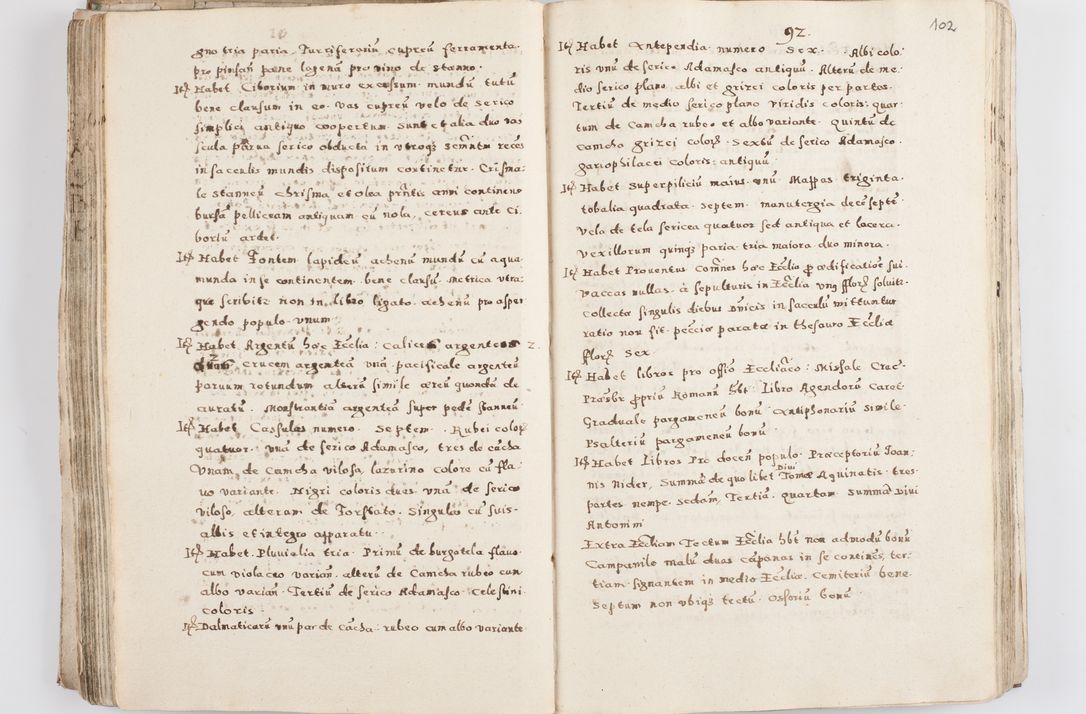 gno tria paria. Turciferariū cupreū ferramenta
pro pinsan̄ pane lagenā pro vino de stanno.
Itē Habet Ciborium in muro excussum mundū tutū
bene clausum in eo. vas cupreū velo de serico
simplici antiquo coopertum. sunt et alia duo va
scula parua serico obducta in utroqȝ Scm̄tm reces
in sacculis mundis dispositum continetur. Crisma
le stanneū Chrisma et olea pn̄tis anni continens
bursā pelliceam antiquam cū nola, cereus ante Ci
boriū ardet.
Itē Habet Fontem lapideū achenū mundū cū aqua
munda in se continentem. bene clausū. Metrica vtra
que scribitr non in libro ligato. achenū pro asper
gendo populo vnum
Itē Habet Argentū hoc Ecclia: Calices argenteos 2.
duos crucem argenteā vnā pacificale argenteū
paruum rotundum alterū simile æreū quondā de
auratū. Monstrantiā argenteā super pede stanneū
Itē Habet Cassulas numero. Septem. Rubei color
quatuor. vnā de serico Adamasco, tres de cācha
Vnam de Camcha vilosa, lazurino colore cū fla
uo variante. Nigri coloris duas. vnā de serico
viloso, alteram de Torstato. Singulas cū suis
albis et integro apparatu.
Itē Habet. Pluuialia tria. Primū de burgatela flauo
cum violaceo varian̄. alterū de Camcha rubeo cum
albo varian̄. Tertiū de serico Adamasco. Celestini
coloris.
Itē Dalmaticarū vnū par de Cācha: rubeo cum albo variante
92.
102
Itē Habet Antependia numero Sex. Albi colo
ris vnū de serico Adamasco antiquū. Alterū de me
dio serico plano albi et grizei coloris per partes.
Tertiū de medio serico plano viridis coloris: quar
tum de Camcha rubeo et albo variante. Quintū de
camcha grizei color. Sextū de serico Adamasco.
gariophilacei coloris: antiquū
Itē Habet superpiliciū maius vnū Mappas triginta.
tobalia quadrata. septem. manutergia decē septē
vela de tela sericea quatuor sed antiqua et lacera.
vexillorum quinqȝ paria. tria maiora duo minora.
Itē Habet Prouentus Com̄nes hæc Ecclia p ædificatioē sui.
vaccas nullas. à sepulturis in Ecclia vnꝰ fflor soluitr
Collecta singulis diebus Dn̄icis in sacculū mittuntur
ratio non fit. pec̄cia parata in thesauro Ecclia
fflor sex
Itē Habet libros pro offō Eccliaco: Missale Crac.
Præsbr ppriū Romanū hbt. Libro Agendorū Caret
Graduale pargameneū bonū Antiphonariū simile
Psalteriū pargameneū bonū
Itē Habet Libros Pro docen̄ populo. Præceptoriū Joan
nis Nider, Summā de quolibet Diui Tomæ Aquinatis. tres
partes nempe. Sedam, Tertiā. Quartam. Summā Diui
Antonini
Extra Eccliam Tectum Ecclia hbt non admodū bonū
Campanile malū duas cāpanas in se continēs, ter
tiam signantem in medio Ecclia. Cemiteriū bene
septum non vbiqȝ tectū. Ossoriū bonū